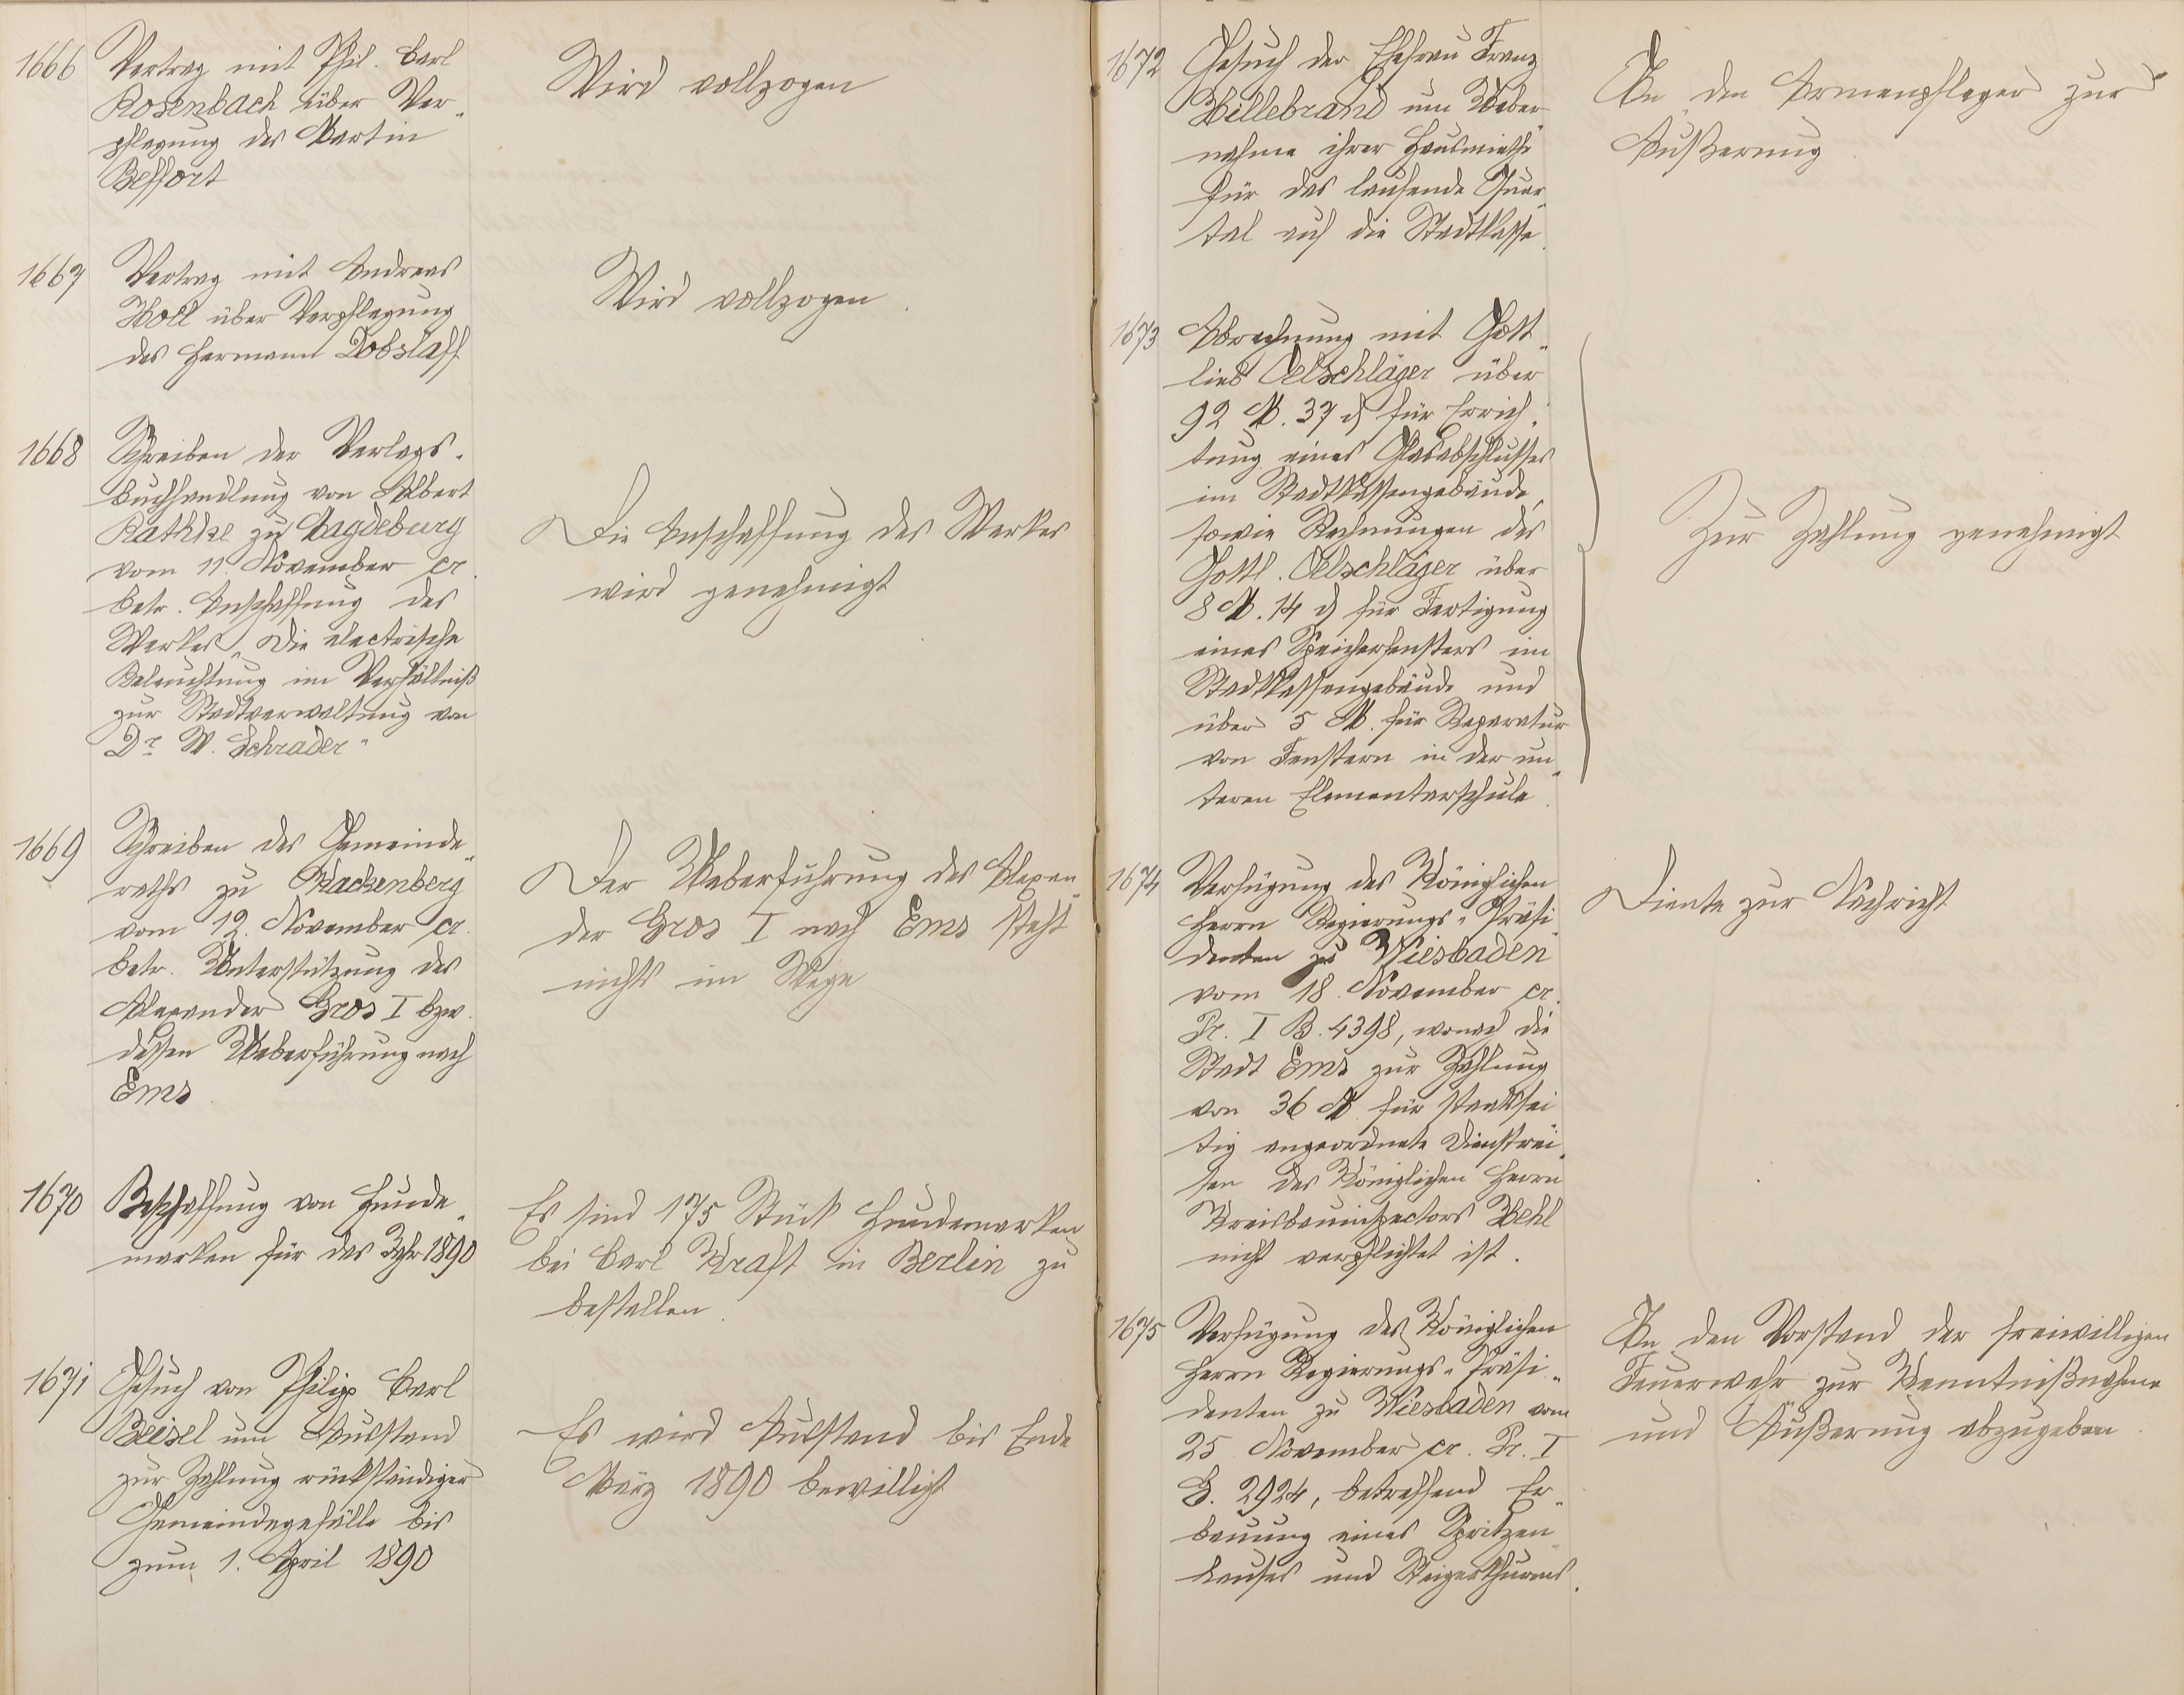 1666
Vertrag mit Phil. Carl
Rosenbach über Ver-
pflegung des Martin
Beffort
Wird vollzogen
1667
Vertrag mit Andreas
Holl über Verpflegung
des Hermann Dobslaff
Wird vollzogen.
1668
Schreiben der Verlags-
buchhandlung von Albert
Rathke zu Magdeburg
vom 11. November cr.
betr. Anschaffung des
Werkes "Die electrische
Beleuchtung im Verhältniß
zur Stadtverwaltung von
Dr. W. Schrader"
Die Anschaffung des Werkes
wird genehmigt
1669
Schreiben des Gemeinde-
raths zu Wackenberg
vom 12. November cr.
betr. Unterstützung des
Alexander Gros I bzw.
dessen Ueberführung nach
Ems.
Der Ueberführung des Alexan-
der Gros I nach Ems steht
nichts im Wege
1670
Beschaffung von Hunde-
marken für das Jahr 1890
Es sind 175 Stück Hundemarken
bei Carl Kraft in Berlin zu
bestellen.
1671
Gesuch von Philipp Carl
Beisel um Ausstand
zur Zahlung rückständiger
Gemeindegefälle bis
zum 1. April 1890
Es wird Ausstand bis Ende
März 1890 bewilligt
1672
Gesuch der Ehefrau Franz
Hillebrand um Ueber-
nahme ihrer Hausmiethe
für das laufende Quar-
tal auf die Stadtkasse.
An den Armenpfleger zur
Äußerung
1673
Abrechnung mit Gott-
lieb Oelschläger über
92 M. 37 ₰ für Errich-
tung eines Glasabschlusses
im Stadtkassengebäude,
sowie Rechnungen des
Gottl. Oelschläger über
8 M. 14 ₰ für Fertigung
eines Speicherfensters im
Stadtkassengebäude und
über 5 M. für Reparatur
von Fenstern in der un-
teren Elementarschule.
Zur Zahlung genehmigt
1674
Verfügung des Königlichen
Herrn Regierungs-Präsi-
denten zu Wiesbaden
vom 18. November cr.
Pr. I B. 4398, wonach die
Stadt Ems zur Zahlung
von 36 M. für staatssei-
tig angeordnete Dienstrei-
sen des Königlichen Herrn
Kreisbauinspectors Hehl
nicht verpflichtet ist.
Diente zur Nachricht
1675
Verfügung des Königlichen
Herrn Regierungs-Präsi-
denten zu Wiesbaden vom
25. November cr. Pr. I
G. 2924, betreffend Er-
bauung eines Spritzen-
hauses und Steigerthurms.
An den Vorstand der freiwilligen
Feuerwehr zur Kenntnißnahme
und Äußerung abzugeben.